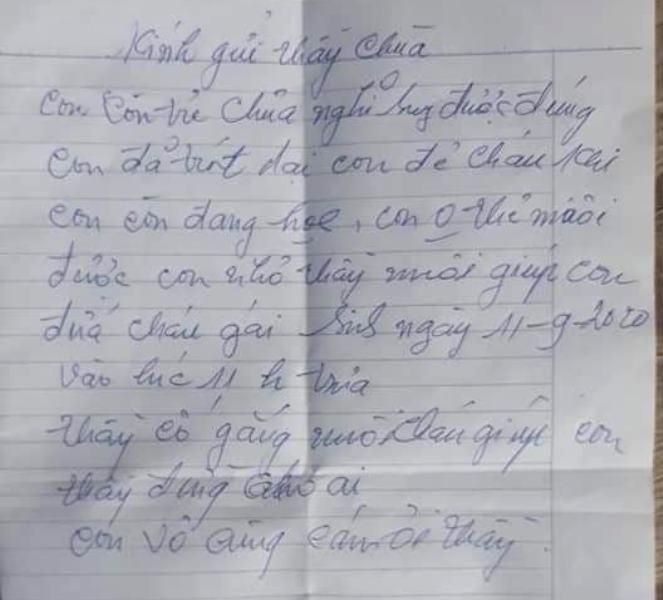 Kính gửi thầy Chùa
Con còn trẻ chưa nghĩ được đúng
con đã trót dại con đẻ cháu khi
con còn đang học, con 0 thể nuôi
được con nhờ thầy nuôi giúp con
đứa cháu gái sinh ngày 11-9-2020
vào lúc 11 h trưa
thầy cố gắng nuôi cháu giúp con
thầy đừng cho ai
con vô cùng cám ơn thầy.